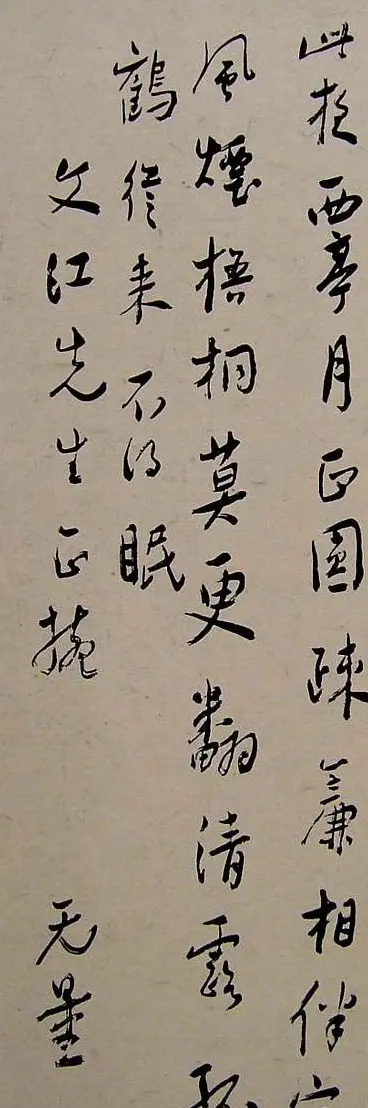 此夜西亭月正圓疎簾相伴宿
風煙梧桐莫更翻清露孤
鶴從来不得眠
文江先生正捥
无量